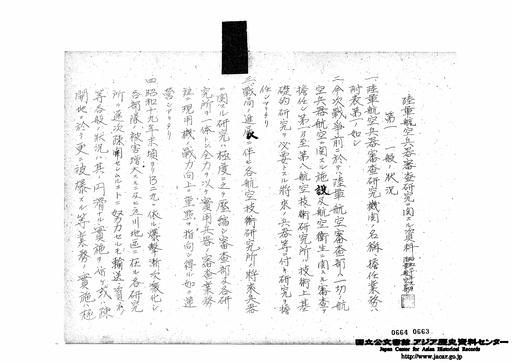 陸軍航空兵器審査研究ニ関スル資料
第一 一般ノ状況
一、陸軍航空兵器審査研究機関ノ名称、擔任業務ハ
附表第一ノ如シ
二、今次戦争前ニ於テハ陸軍航空審査部ハ一切ノ航
空兵器航空ニ関スル施設及航空衛生ニ関スル審査ヲ
擔任シ第一乃至第八航空技術研究所ハ技術上基
礎的研究ヲ必要トスル将来ノ兵器等ニ付キ研究ヲ擔
任シアリタリ
三、戦局ノ進展ニ伴ヒ各航空技術研究所ハ将来兵器
ニ関スル研究ハ極度ニ之ヲ壓縮シ審査部及各研
究所ヲ一体トシ全力ヲ以テ實用兵器ノ審査業務
並ニ現用機ノ戦力向上ニ重點ヲ指向シ得ル如ク運
營シアリタリ
四、昭和十九年末頃ヨリB29ニ依ル爆撃漸次激化シ
各部隊被害増大スルニ及ビ立川地區ニ在ル各研究
所ヲ逐次疎開セシムルコトニ努力セルモ輸送、資材
等各般ノ状況ハ其ノ円滑ナル實施ヲ妨ゲ或ハ疎
開地ニ於テ更ニ被爆スル等業務ノ實施ハ極
0664 0663
国立公文書館 アジア歴史資料センター
Japan Center for Asian Historical Records
http://www.jacar.go.jp